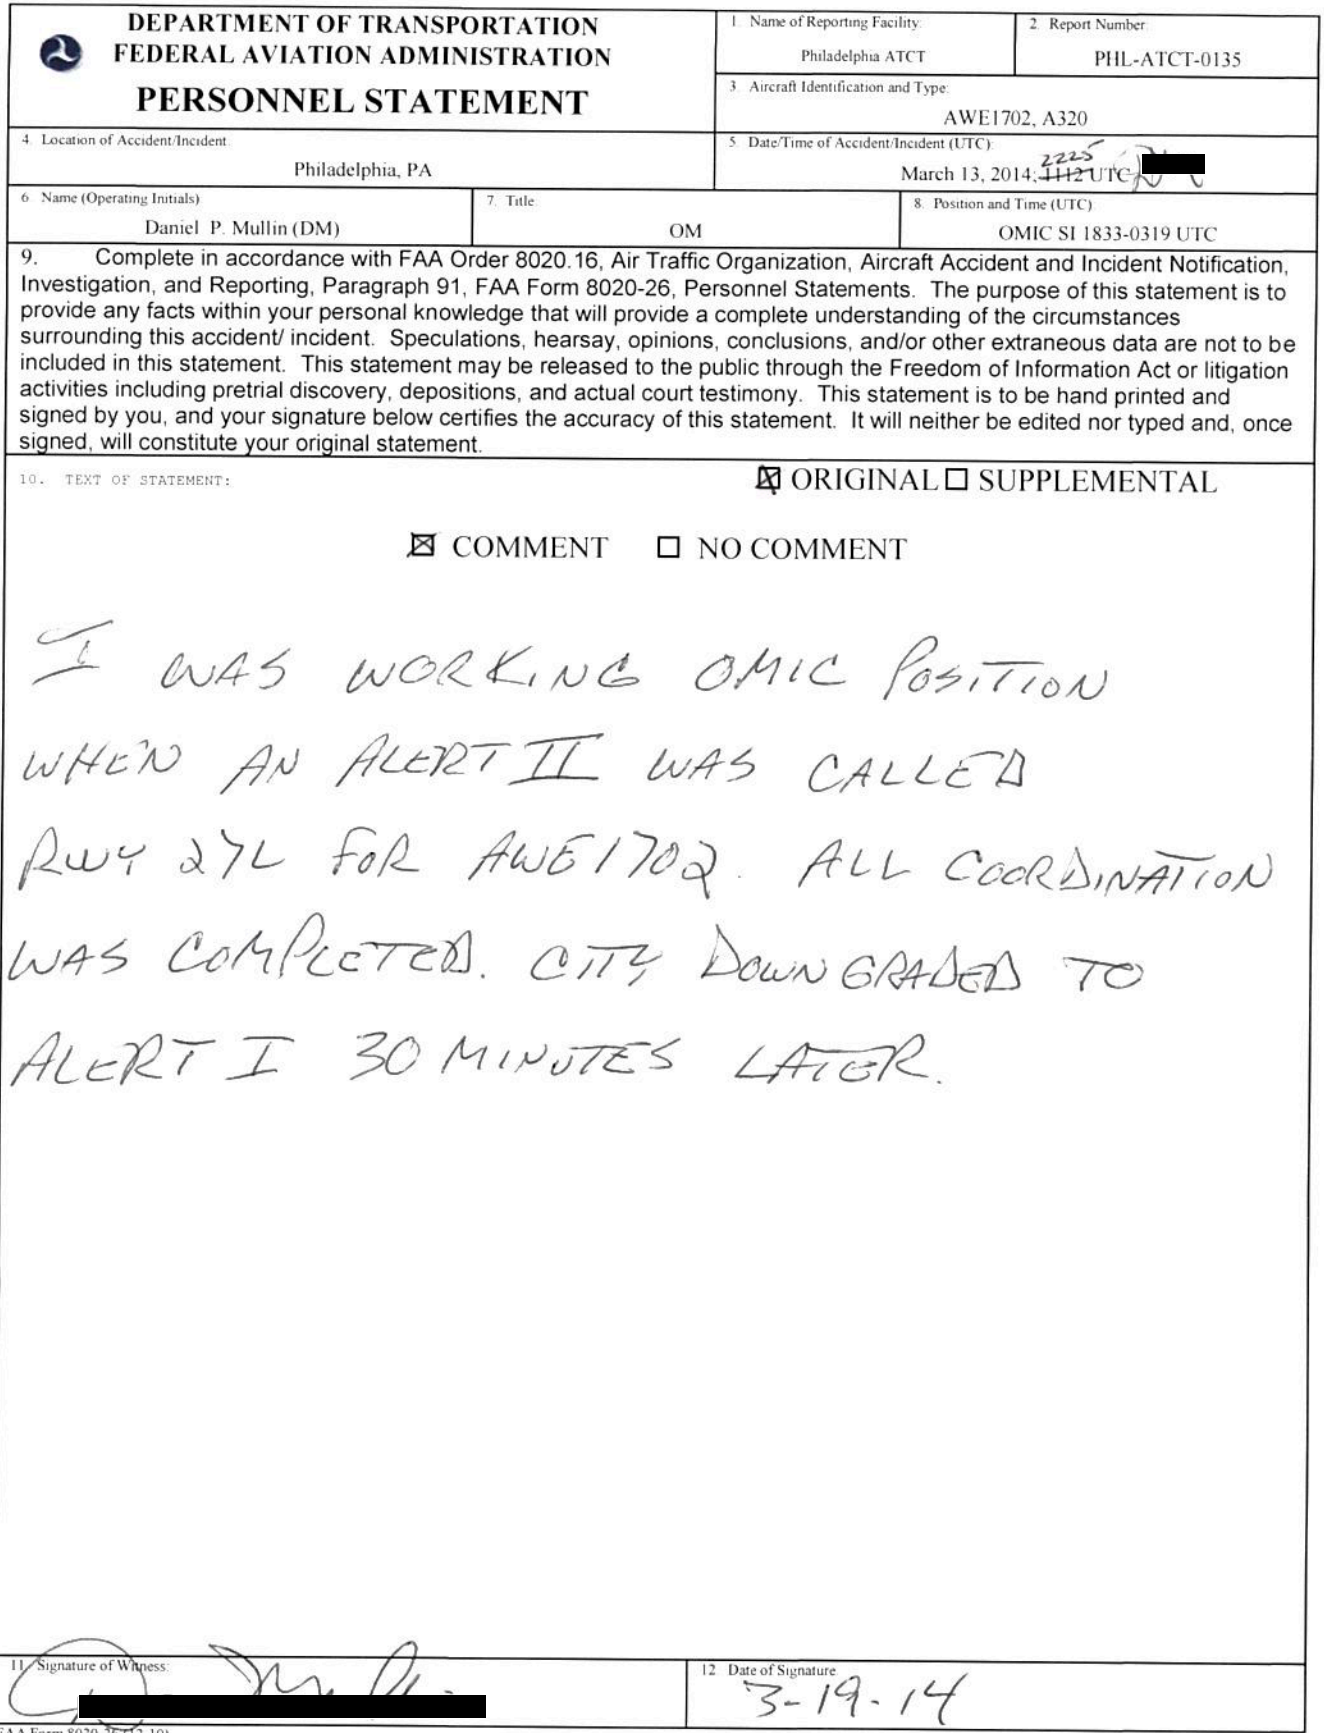 DEPARTMENT OF TRANSPORTATION
FEDERAL AVIATION ADMINISTRATION
PERSONNEL STATEMENT
1. Name of Reporting Facility:
Philadelphia ATCT
2. Report Number
PHL-ATCT-0135
3. Aircraft Identification and Type:
AWE1702, A320
4. Location of Accident/Incident
Philadelphia, PA
5. Date/Time of Accident/Incident (UTC):
2225
March 13, 2014; 1112 UTC
6. Name (Operating Initials)
Daniel P. Mullin (DM)
7. Title
OM
8. Position and Time (UTC)
OMIC SI 1833-0319 UTC
9. Complete in accordance with FAA Order 8020.16, Air Traffic Organization, Aircraft Accident and Incident Notification,
Investigation, and Reporting, Paragraph 91, FAA Form 8020-26, Personnel Statements. The purpose of this statement is to
provide any facts within your personal knowledge that will provide a complete understanding of the circumstances
surrounding this accident/ incident. Speculations, hearsay, opinions, conclusions, and/or other extraneous data are not to be
included in this statement. This statement may be released to the public through the Freedom of Information Act or litigation
activities including pretrial discovery, depositions, and actual court testimony. This statement is to be hand printed and
signed by you, and your signature below certifies the accuracy of this statement. It will neither be edited nor typed and, once
signed, will constitute your original statement.
10. TEXT OF STATEMENT:
☒ ORIGINAL ☐ SUPPLEMENTAL
☒ COMMENT ☐ NO COMMENT
I WAS WORKING OMIC POSITION
WHEN AN ALERT II WAS CALLED
RWY 27L FOR AWE1702. ALL COORDINATION
WAS COMPLETED. CITY DOWNGRADED TO
ALERT I 30 MINUTES LATER.
11. Signature of Witness:
12. Date of Signature
3-19-14
FAA Form 8020-26 (12-10)